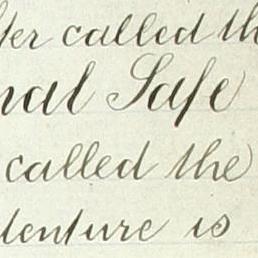 fter called th
nal Safe
called the
denture is